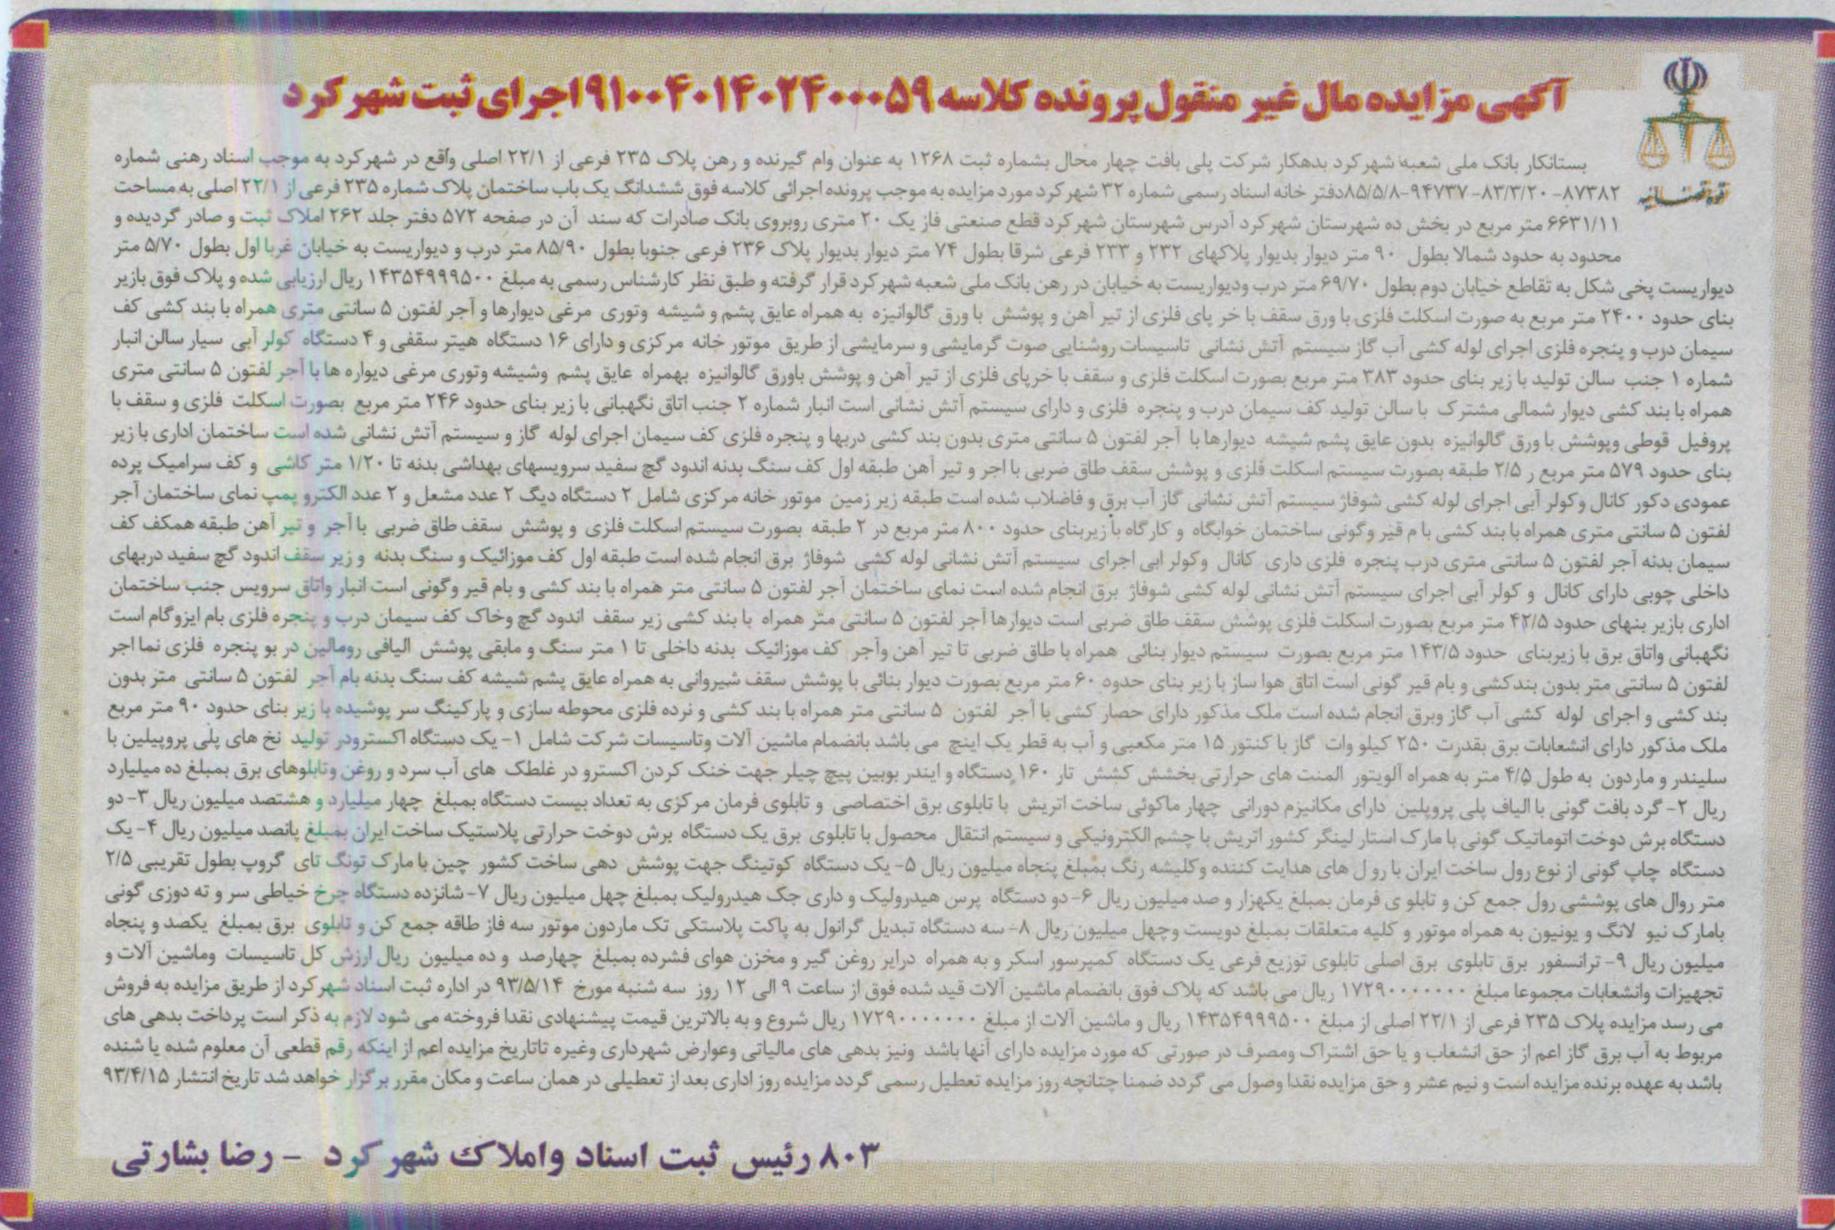 آگهی مزایده مال غیر منقول پرونده کلاسه ۹۱۰۰۴۰۱۴۰۲۴۰۰۰۵۹ اجرای ثبت شهر کرد
قوه قضائیه
بستانکار بانک ملی شعبه شهرکرد بدهکار شرکت پلی بافت چهار محال بشماره ثبت ۱۲۶۸ به عنوان وام گیرنده و رهن پلاک ۲۳۵ فرعی از ۲۲/۱ اصلی واقع در شهرکرد به موجب اسناد رهنی شماره
۸۷۳۸۲-۸۳/۳/۲۰-۹۴۷۳۷-۸۵/۵/۸دفتر خانه اسناد رسمی شماره ۳۲ شهر کرد مورد مزایده به موجب پرونده اجرائی کلاسه فوق ششدانگ یک باب ساختمان پلاک شماره ۲۳۵ فرعی از ۲۲/۱ اصلی به مساحت
۶۶۳۱/۱۱ متر مربع در بخش ده شهرستان شهر کرد آدرس شهرستان شهرکرد قطع صنعتی فاز یک ۲۰ متری روبروی بانک صادرات که سند آن در صفحه ۵۷۲ دفتر جلد ۲۶۲ املاک ثبت و صادر گردیده و
محدود به حدود شمالا بطول ۹۰ متر دیوار بدیوار پلاکهای ۲۳۲ و ۲۳۳ فرعی شرقا بطول ۷۴ متر دیوار بدیوار پلاک ۲۳۶ فرعی جنوبا بطول ۸۵/۹۰ متر درب و دیواریست به خیابان غربا اول بطول ۵/۷۰ متر
دیواریست پخی شکل به تقاطع خیابان دوم بطول ۶۹/۷۰ متر درب ودیواریست به خیابان در رهن بانک ملی شعبه شهر کرد قرار گرفته و طبق نظر کارشناس رسمی به مبلغ ۱۴۳۵۴۹۹۹۵۰۰ ریال ارزیابی شده و پلاک فوق بازیر
بنای حدود ۲۴۰۰ متر مربع به صورت اسکلت فلزی با ورق سقف با خر پای فلزی از تیر آهن و پوشش با ورق گالوانیزه به همراه عایق پشم و شیشه وتوری مرغی دیوارها و آجر لفتون ۵ سانتی متری همراه با بند کشی کف
سیمان درب و پنجره فلزی اجرای لوله کشی آب گاز سیستم آتش نشانی تاسیسات روشنایی صوت گرمایشی و سرمایشی از طریق موتور خانه مرکزی و دارای ۱۶ دستگاه هیتر سقفی و ۴ دستگاه کولر آبی سیار سالن انبار
شماره ۱ جنب سالن تولید با زیر بنای حدود ۳۸۳ متر مربع بصورت اسکلت فلزی و سقف با خرپای فلزی از تیر آهن و پوشش باورق گالوانیزه بهمراه عایق پشم وشیشه وتوری مرغی دیواره ها با آجر لفتون ۵ سانتی متری
همراه با بند کشی دیوار شمالی مشترک با سالن تولید کف سیمان درب و پنجره فلزی و دارای سیستم آتش نشانی است انبار شماره ۲ جنب اتاق نگهبانی با زیر بنای حدود ۲۴۶ متر مربع بصورت اسکلت فلزی و سقف با
پروفیل قوطی وپوشش با ورق گالوانیزه بدون عایق پشم شیشه دیوارها با آجر لفتون ۵ سانتی متری بدون بند کشی دربها و پنجره فلزی کف سیمان اجرای لوله گاز و سیستم آتش نشانی شده است ساختمان اداری با زیر
بنای حدود ۵۷۹ متر مربع ر ۲/۵ طبقه بصورت سیستم اسکلت فلزی و پوشش سقف طاق ضربی با اجر و تیر آهن طبقه اول کف سنگ بدنه اندود گچ سفید سرویسهای بهداشی بدنه تا ۱/۲۰ متر کاشی و کف سرامیک پرده
عمودی دکور کانال وکولر آبی اجرای لوله کشی شوفاژ سیستم آتش نشانی گاز آب برق و فاضلاب شده است طبقه زیر زمین موتور خانه مرکزی شامل ۲ دستگاه دیگ ۲ عدد مشعل و ۲ عدد الکترو پمپ نمای ساختمان آجر
لفتون ۵ سانتی متری همراه با بند کشی با م قیر وگونی ساختمان خوابگاه و کارگاه با زیربنای حدود ۸۰۰ متر مربع در ۲ طبقه بصورت سیستم اسکلت فلزی و پوشش سقف طاق ضربی با آجر و تیر آهن طبقه همکف کف
سیمان بدنه آجر لفتون ۵ سانتی متری درب پنجره فلزی داری کانال وکولر ابی اجرای سیستم آتش نشانی لوله کشی شوفاژ برق انجام شده است طبقه اول کف موزائیک و سنگ بدنه و زیر سقف اندود گچ سفید دربهای
داخلی چوبی دارای کانال و کولر آبی اجرای سیستم آتش نشانی لوله کشی شوفاژ برق انجام شده است نمای ساختمان آجر لفتون ۵ سانتی متر همراه با بند کشی و بام قیر وگونی است انبار واتاق سرویس جنب ساختمان
اداری بازیر بنهای حدود ۴۲/۵ متر مربع بصورت اسکلت فلزی پوشش سقف طاق ضربی است دیوارها آجر لفتون ۵ سانتی متر همراه با بند کشی زیر سقف اندود گچ وخاک کف سیمان درب و پنجره فلزی بام ایزوگام است
نگهبانی واتاق برق با زیربنای حدود ۱۴۳/۵ متر مربع بصورت سیستم دیوار بنائی همراه با طاق ضربی تا تیر آهن وآجر کف موزائیک بدنه داخلی تا ۱ متر سنگ و مابقی پوشش الیافی رومالین در بو پنجره فلزی نما اجر
لفتون ۵ سانتی متر بدون بندکشی و بام قیر گونی است اتاق هوا ساز با زیر بنای حدود ۶۰ متر مربع بصورت دیوار بنائی با پوشش سقف شیروانی به همراه عایق پشم شیشه کف سنگ بدنه بام آجر لفتون ۵ سانتی متر بدون
بند کشی و اجرای لوله کشی آب گاز وبرق انجام شده است ملک مذکور دارای حصار کشی با آجر لفتون ۵ سانتی متر همراه با بند کشی و نرده فلزی محوطه سازی و پارکینگ سر پوشیده با زیر بنای حدود ۹۰ متر مربع
ملک مذکور دارای انشعابات برق بقدرت ۲۵۰ کیلو وات گاز با کنتور ۱۵ متر مکعبی و آب به قطر یک اینچ می باشد بانضمام ماشین آلات وتاسیسات شرکت شامل ۱- یک دستگاه اکسترودر تولید نخ های پلی پروپیلین با
سلیندر و ماردون به طول ۴/۵ متر به همراه آلویتور المنت های حرارتی بخشش کشش تار ۱۶۰ دستگاه و ایندر بوبین پیچ چیلر جهت خنک کردن اکسترو در غلطک های آب سرد و روغن وتابلوهای برق بمبلغ ده میلیارد
ریال ۲- گرد بافت گونی با الیاف پلی پروپلین دارای مکانیزم دورانی چهار ماکوئی ساخت اتریش با تابلوی برق اختصاصی و تابلوی فرمان مرکزی به تعداد بیست دستگاه بمبلغ چهار میلیارد و هشتصد میلیون ریال ۳- دو
دستگاه برش دوخت اتوماتیک گونی با مارک استار لینگر کشور اتریش با چشم الکترونیکی و سیستم انتقال محصول با تابلوی برق یک دستگاه برش دوخت حرارتی پلاستیک ساخت ایران بمبلغ پانصد میلیون ریال ۴- یک
دستگاه چاپ گونی از نوع رول ساخت ایران با رول های هدایت کننده وکلیشه رنگ بمبلغ پنجاه میلیون ریال ۵- یک دستگاه کوتینگ جهت پوشش دهی ساخت کشور چین با مارک تونگ تای گروپ بطول تقریبی ۲/۵
متر روال های پوششی رول جمع کن و تابلو ی فرمان بمبلغ یکهزار و صد میلیون ریال ۶- دو دستگاه پرس هیدرولیک و داری جک هیدرولیک بمبلغ چهل میلیون ریال ۷- شانزده دستگاه چرخ خیاطی سر و ته دوزی گونی
بامارک نیو لانگ و یونیون به همراه موتور و کلیه متعلقات بمبلغ دویست وچهل میلیون ریال ۸- سه دستگاه تبدیل گرانول به پاکت پلاستکی تک ماردون موتور سه فاز طاقه جمع کن و تابلوی برق بمبلغ یکصد و پنجاه
میلیون ریال ۹- ترانسفور برق تابلوی برق اصلی تابلوی توزیع فرعی یک دستگاه کمپرسور اسکر و به همراه درایر روغن گیر و مخزن هوای فشرده بمبلغ چهارصد و ده میلیون ریال ارزش کل تاسیسات وماشین آلات و
تجهیزات وانشعابات مجموعا مبلغ ۱۷۲۹۰۰۰۰۰۰۰ ریال می باشد که پلاک فوق بانضمام ماشین آلات قید شده فوق از ساعت ۹ الی ۱۲ روز سه شنبه مورخ ۹۳/۵/۱۴ در اداره ثبت اسناد شهرکرد از طریق مزایده به فروش
می رسد مزایده پلاک ۲۳۵ فرعی از ۲۲/۱ اصلی از مبلغ ۱۴۳۵۴۹۹۹۵۰۰ ریال و ماشین آلات از مبلغ ۱۷۲۹۰۰۰۰۰۰۰ ریال شروع و به بالاترین قیمت پیشنهادی نقدا فروخته می شود لازم به ذکر است پرداخت بدهی های
مربوط به آب برق گاز اعم از حق انشعاب و یا حق اشتراک ومصرف در صورتی که مورد مزایده دارای آنها باشد ونیز بدهی های مالیاتی وعوارض شهرداری وغیره تاتاریخ مزایده اعم از اینکه رقم قطعی آن معلوم شده یا شنده
باشد به عهده برنده مزایده است و نیم عشر و حق مزایده نقدا وصول می گردد ضمنا چتانچه روز مزایده تعطیل رسمی گردد مزایده روز اداری بعد از تعطیلی در همان ساعت و مکان مقرر برگزار خواهد شد تاریخ انتشار ۹۳/۴/۱۵
۸۰۳ رئیس ثبت اسناد واملاک شهر کرد - رضا بشارتی